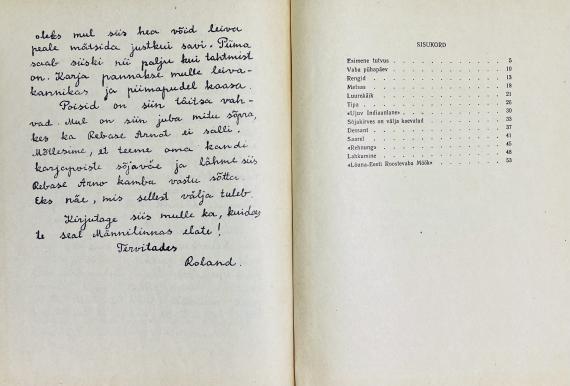 oleks mul siis hea võid leiva
peale mätsida justkui savi. Piima
saab siiski nii palju kui tahtmist
on. Karja pannakse mulle leiva-
kannikas ja piimapudel kaasa.
Poisid on siin täitsa vah-
vad. Mul on siin juba mitu sõpra,
kes ka Rebase Arnot ei salli.
Mõtlesime, et teeme oma kandi
karjapoiste sõjaväe ja lähme siis
Rebase Arno kamba vastu sõtta.
Eks näe, mis sellest välja tuleb.
Kirjutage siis mulle ka, kuidas
te seal Männilinnas elate!
Tervitades
Roland.
SISUKORD
Esimene tutvus . . . . . . . . . . 5
Vaba pühapäev . . . . . . . . . . 10
Rengid . . . . . . . . . . 13
Metsas . . . . . . . . . . 18
Luurekäik . . . . . . . . . . 21
Tipa . . . . . . . . . . 26
«Ujuv Indiaanlane» . . . . . . . . . . 30
Sõjakirves on välja kaevatud . . . . . . 33
Dessant . . . . . . . . . . 37
Saarel . . . . . . . . . . 41
«Rehnung» . . . . . . . . . . 45
Lahkumine . . . . . . . . . . 48
«Lõuna-Eesti Roostevaba Mõõk» . . . . . . 53